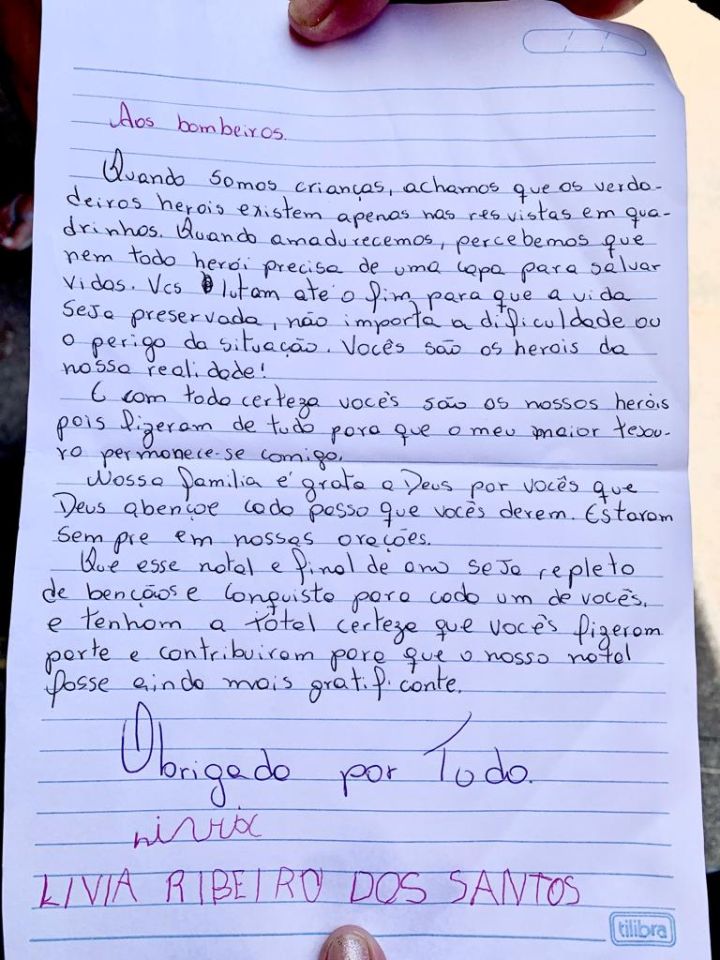 Aos bombeiros.
Quando somos crianças, achamos que os verda-
deiros herois existem apenas nas resvistas em qua-
drinhos. Quando amadurecemos, percebemos que
nem todo herói precisa de uma capa para salvar
vidas. Vcs lutam até o fim para que a vida
seja preservada, não importa a dificuldade ou
o perigo da situação. Vocês são os herois da
nossa realidade!
E com toda certeza vocês são os nossos heróis
pois fizeram de tudo para que o meu maior tesou-
ro permanece-se comigo.
Nossa familia é grata a Deus por vocês que
Deus abençoe cada passo que vocês derem. Estaram
sempre em nossas orações.
Que esse natal e final de ano seja repleto
de bençãos e conquista para cada um de vocês.
e tenham a total certeza que vocês fizeram
parte e contribuiram para que o nosso natal
fosse ainda mais gratificante.
Obrigado por Tudo.
LIVIA RIBEIRO DOS SANTOS
tilibra